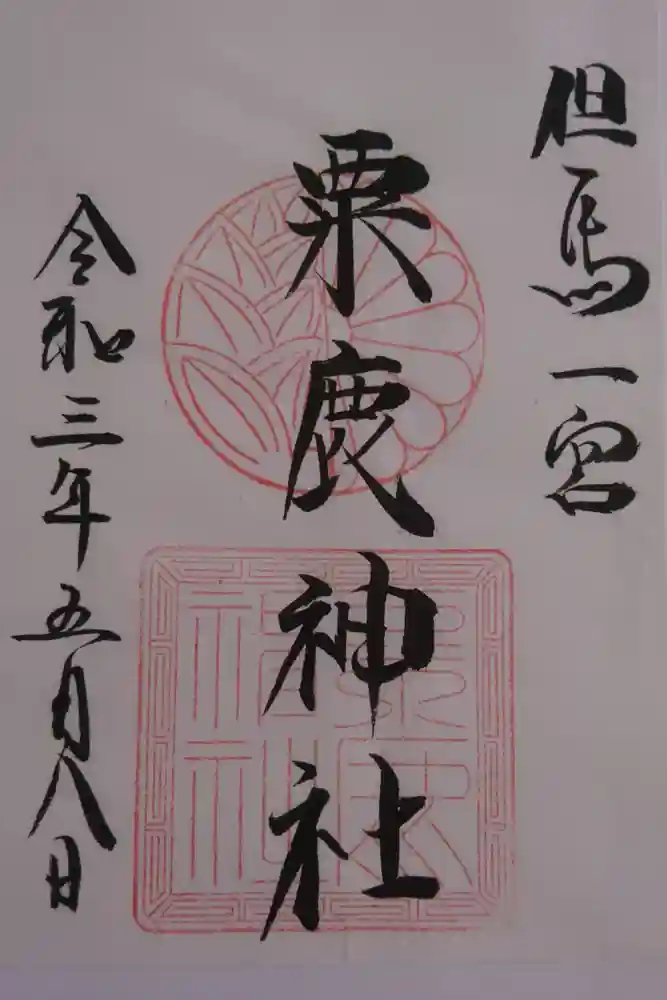 但馬一宮
粟鹿神社
令和三年五月八日
粟鹿神社